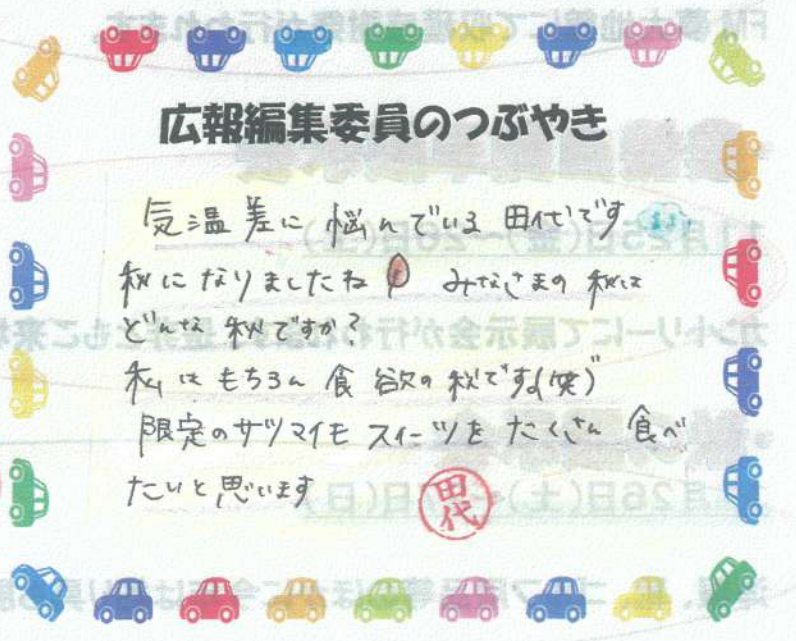 広報編集委員のつぶやき
気温差に悩んでいる 田代です
秋になりましたね みなさまの秋は
どんな秋ですか?
私はもちろん食欲の秋です(笑)
限定のサツマイモスイーツをたくさん食べ
たいと思います
田代